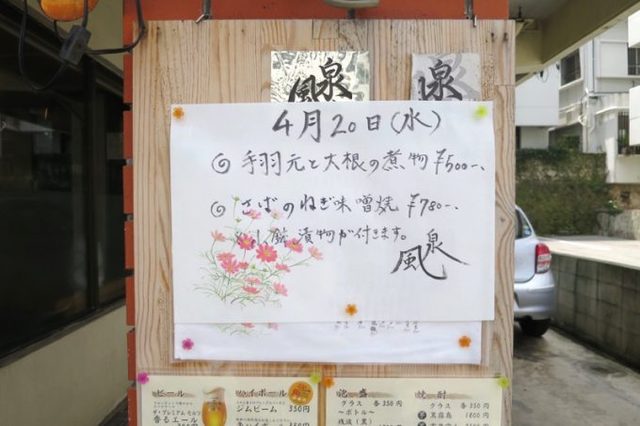 泉
風
4月20日(水)
手羽元と大根の煮物 ¥500-.
さばのねぎ味噌焼 ¥780-.
小鉢、漬物が付きます。
泉
風
ビール
ザ・プレミアム モルツ
香るエール
ハイボール
ジムビーム 350円
泡盛
グラス 各350円
〜ボトル〜
残波(黒)
焼酎
グラス 各350円
黒霧島